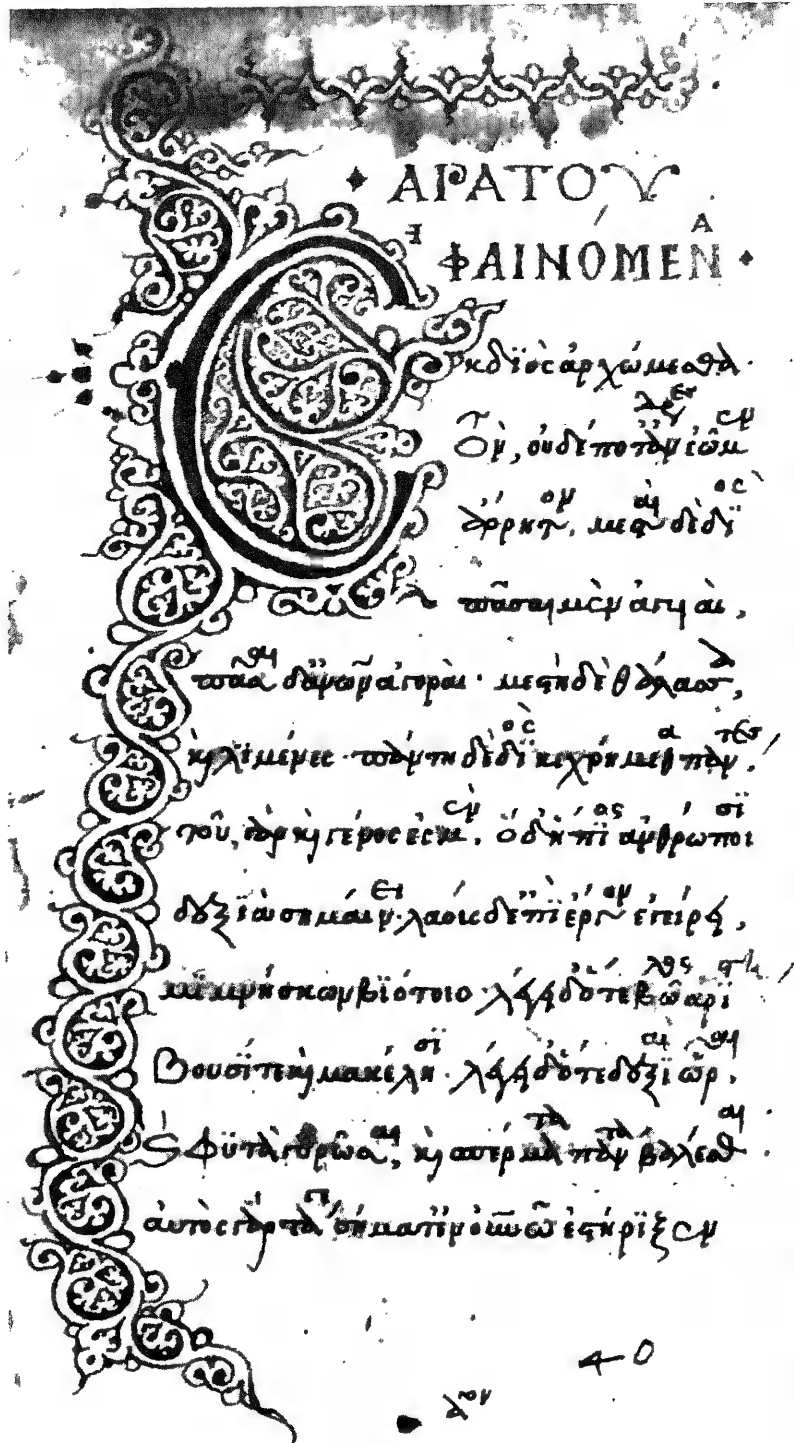 ΑΡΑΤΟΥ
ΦΑΙΝΟΜΕΝΑ
Ἐκ διὸς ἀρχώμεσθα·
τὸν, οὐδέποτ' ἄνδρες ἐῶμεν
ἄρρητον. μεσταὶ δὲ διὸς
πᾶσαι μὲν ἀγυιαὶ,
πᾶσαι δ' ἀνθρώπων ἀγοραί· μεστὴ δὲ θάλασσα,
καὶ λιμένες· πάντη δὲ διὸς κεχρήμεθα πάντες.
τοῦ γὰρ καὶ γένος ἐσμὲν. ὁ δ' ἤπιος ἀνθρώποισι
δεξιὰ σημαίνει· λαοὺς δ' ἐπὶ ἔργον ἐγείρει,
μιμνήσκων βιότοιο· λέγει δ' ὅτε βῶλος ἀρίστη
Βουσί τε καὶ μακέλῃσι· λέγει δ' ὅτε δεξιαὶ ὧραι,
καὶ φυτὰ γυρῶσαι, καὶ σπέρματα πάντα βαλέσθαι·
αὐτὸς γὰρ τάγε σήματ' ἐν οὐρανῷ ἐστήριξεν
40